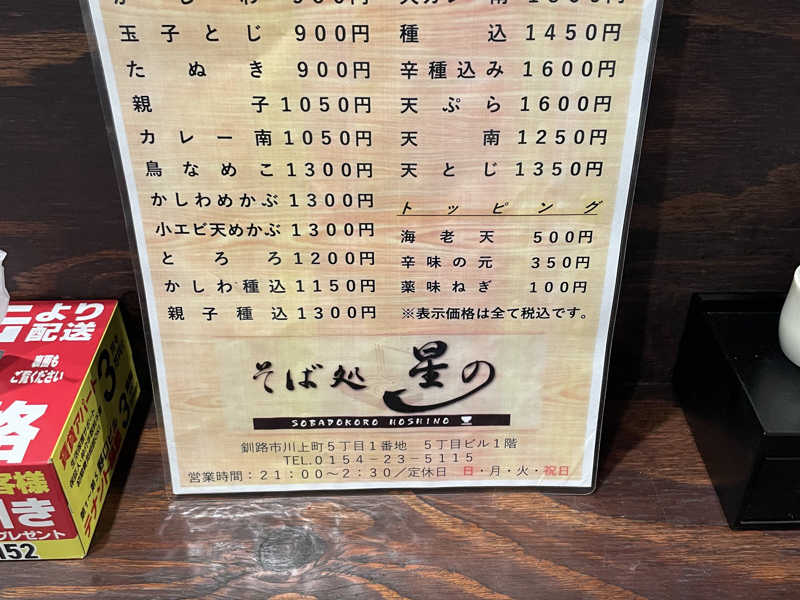 玉子とじ 900円
たぬき 900円
親子 1050円
カレー南 1050円
鳥なめこ 1300円
かしわめかぶ 1300円
小エビ天めかぶ 1300円
とろろ 1200円
かしわ種込 1150円
親子種込 1300円
種込 1450円
辛種込み 1600円
天ぷら 1600円
天南 1250円
天とじ 1350円
トッピング
海老天 500円
辛味の元 350円
薬味ねぎ 100円
※表示価格は全て税込です。
そば処 星の
SOBADOKORO HOSHINO
釧路市川上町5丁目1番地 5丁目ビル1階
TEL.0154-23-5115
営業時間：21：00～2：30／定休日 日・月・火・祝日
より
配送
裏面も
ご覧ください
格
客様
引き
プレゼント
152
賃貸アパート
テナント